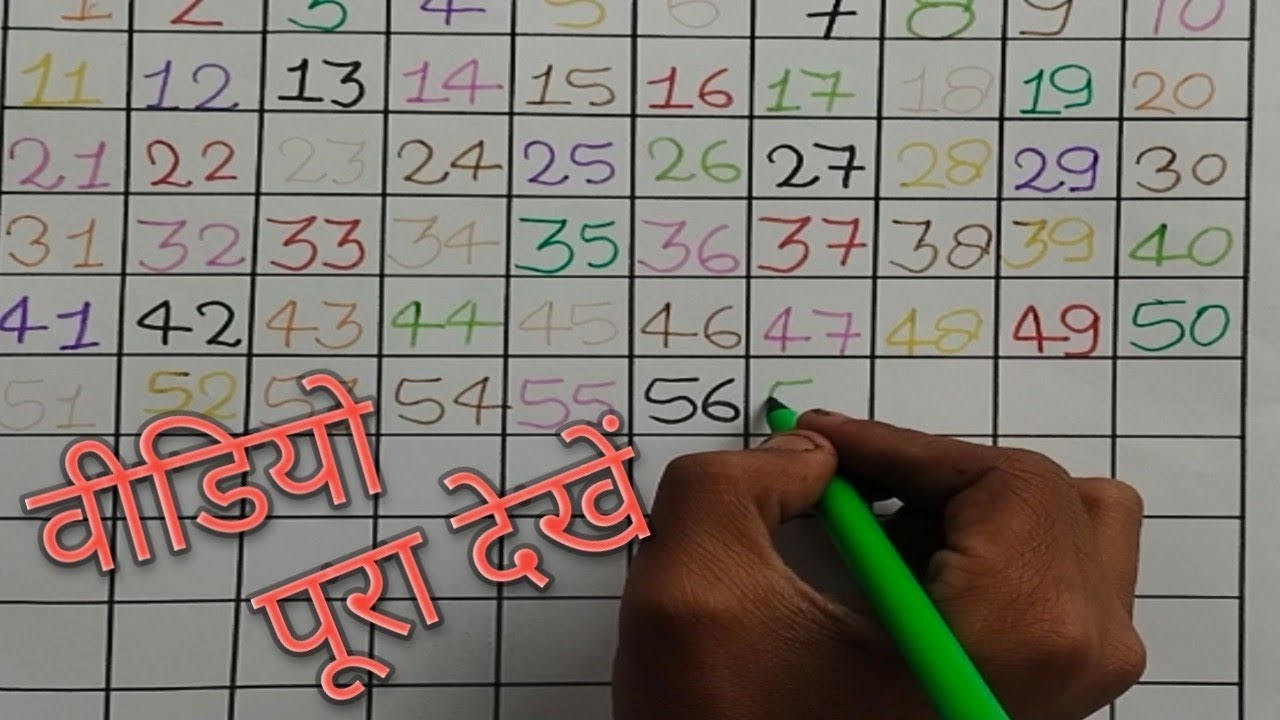 1 2 3 4 5 6 7 8 9 10
11 12 13 14 15 16 17 18 19 20
21 22 23 24 25 26 27 28 29 30
31 32 33 34 35 36 37 38 39 40
41 42 43 44 45 46 47 48 49 50
51 52 53 54 55 56 5
वीडियो
पूरा देखें